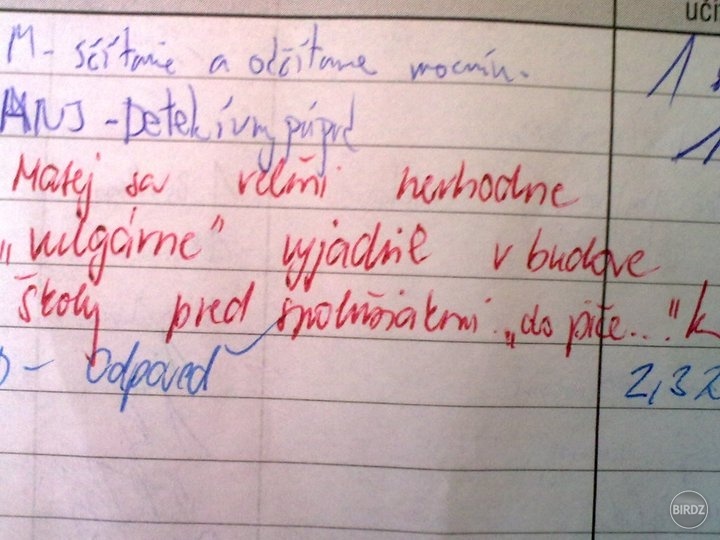 učí
M - sčítanie a odčítanie mocnín. 1
ANJ - Detektívny prípad 1
Matej sa veľmi nevhodne
„vulgárne" vyjadril v budove
školy pred spolužiakmi. „do piče..." k
D - Odpoveď 2,32
BIRDZ